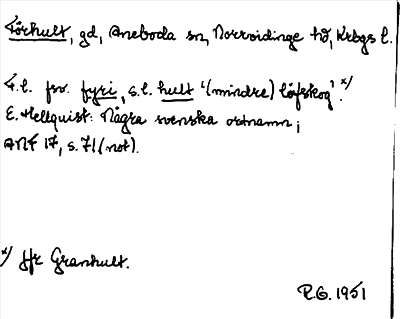 Förhult, gd, Aneboda sn, Norrvidinge hd, Krbgs l.
F.l. fsv. fyri, s.l. hult '(mindre) löfskog'. x)
E. Hellquist: Några svenska ortnamn;
ANF 17, s. 71 (not).
x) jfr Granhult.
R.G. 1951